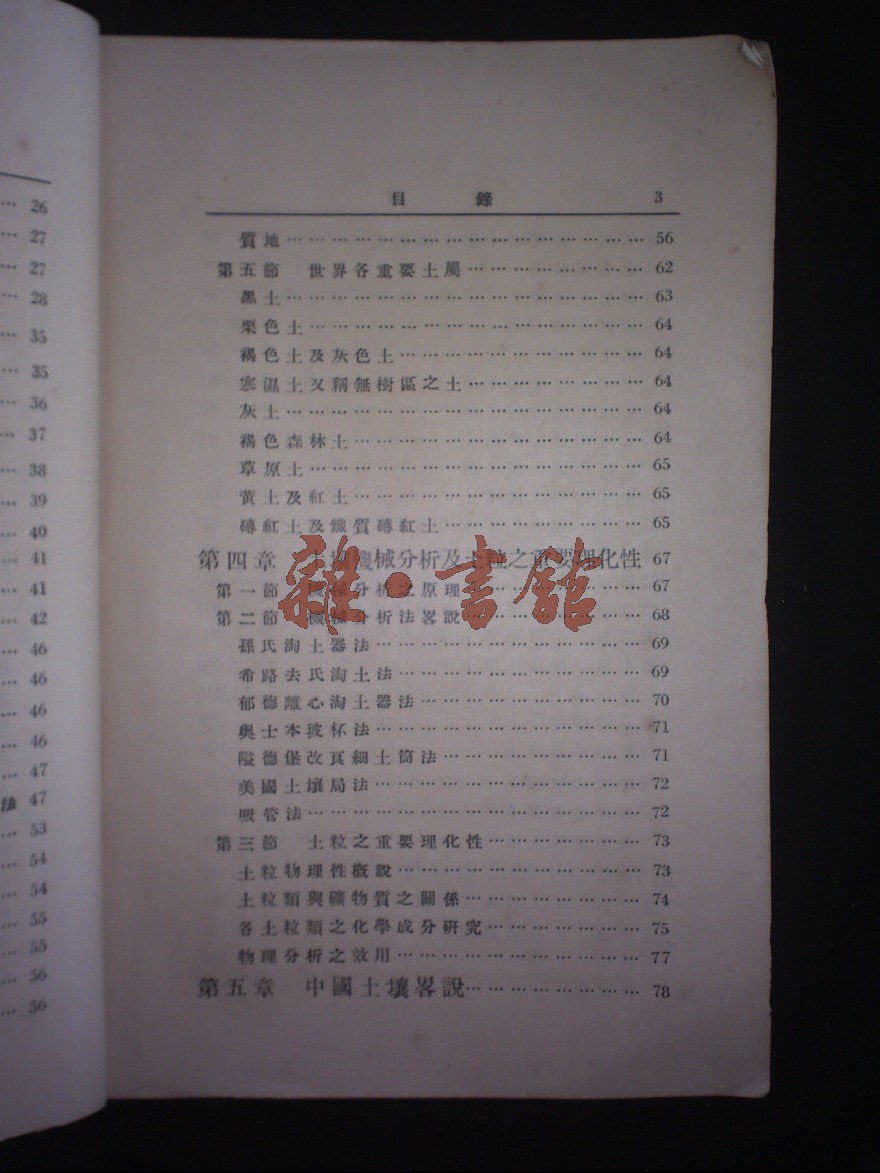 26
27
27
28
35
35
36
37
38
39
40
41
41
42
46
46
46
46
47
法 47
53
54
54
55
55
56
56
目錄 3
質地………………………………………… 56
第五節 世界各重要土屬…………………… 62
黑土………………………………………… 63
栗色土……………………………………… 64
褐色土及灰色土…………………………… 64
寒濕土又稱無樹區之土…………………… 64
灰土………………………………………… 64
褐色森林土………………………………… 64
草原土……………………………………… 65
黃土及紅土………………………………… 65
磚紅土及鐵質磚紅土……………………… 65
第四章 土壤機械分析及土粒之重要理化性 67
第一節 機械分析之原理…………………… 67
第二節 機械分析法畧說…………………… 68
孫氏淘土器法……………………………… 69
希路去氏淘土法…………………………… 69
郁德離心淘土器法………………………… 70
奧士本玻杯法……………………………… 71
隘德堡改頁細土筒法……………………… 71
美國土壤局法……………………………… 72
吸管法……………………………………… 72
第三節 土粒之重要理化性………………… 73
土粒物理性概說…………………………… 73
土粒類與礦物質之關係…………………… 74
各土粒類之化學成分研究………………… 75
物理分析之效用…………………………… 77
第五章 中國土壤畧說……………………… 78
雜·書館